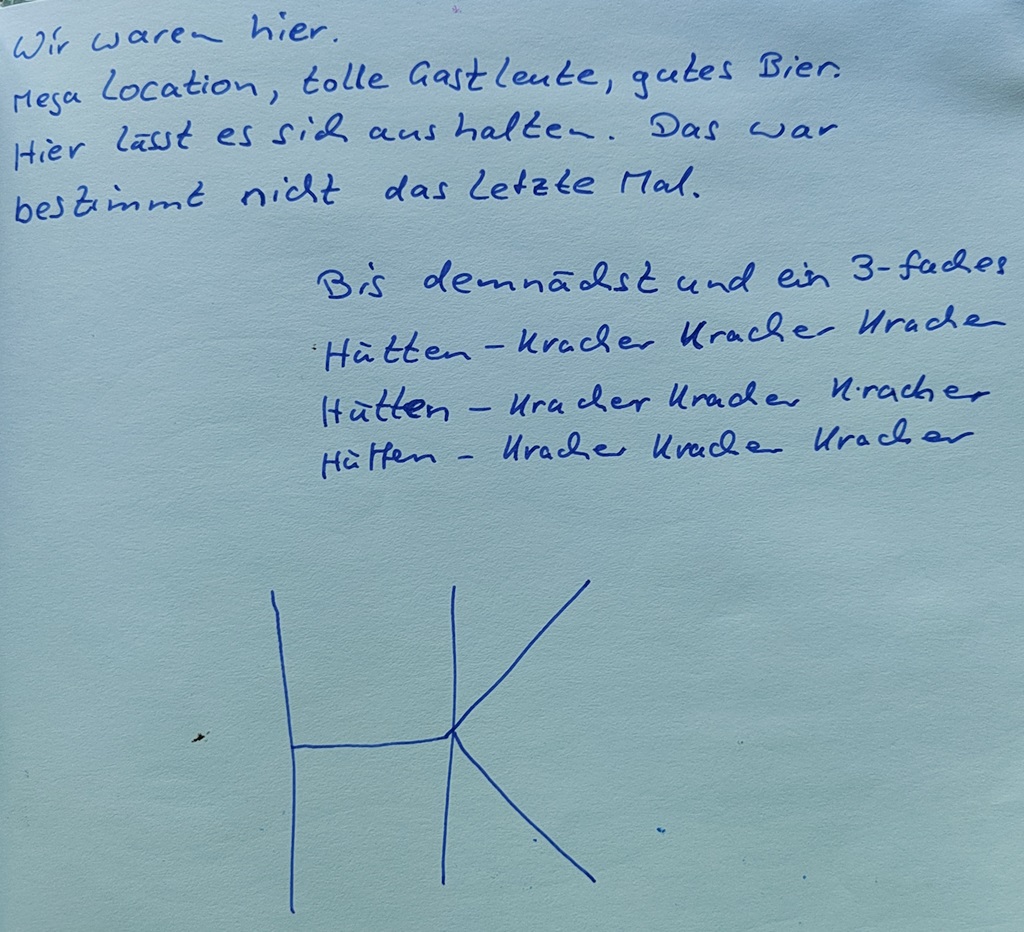 Wir waren hier.
Mega Location, tolle Gastleute, gutes Bier.
Hier lässt es sich aushalten. Das war
bestimmt nicht das letzte Mal.
Bis demnächst und ein 3-faches
Hütten - Kracher Kracher Kracher
Hütten - Kracher Kracher Kracher
Hütten - Kracher Kracher Kracher
HK